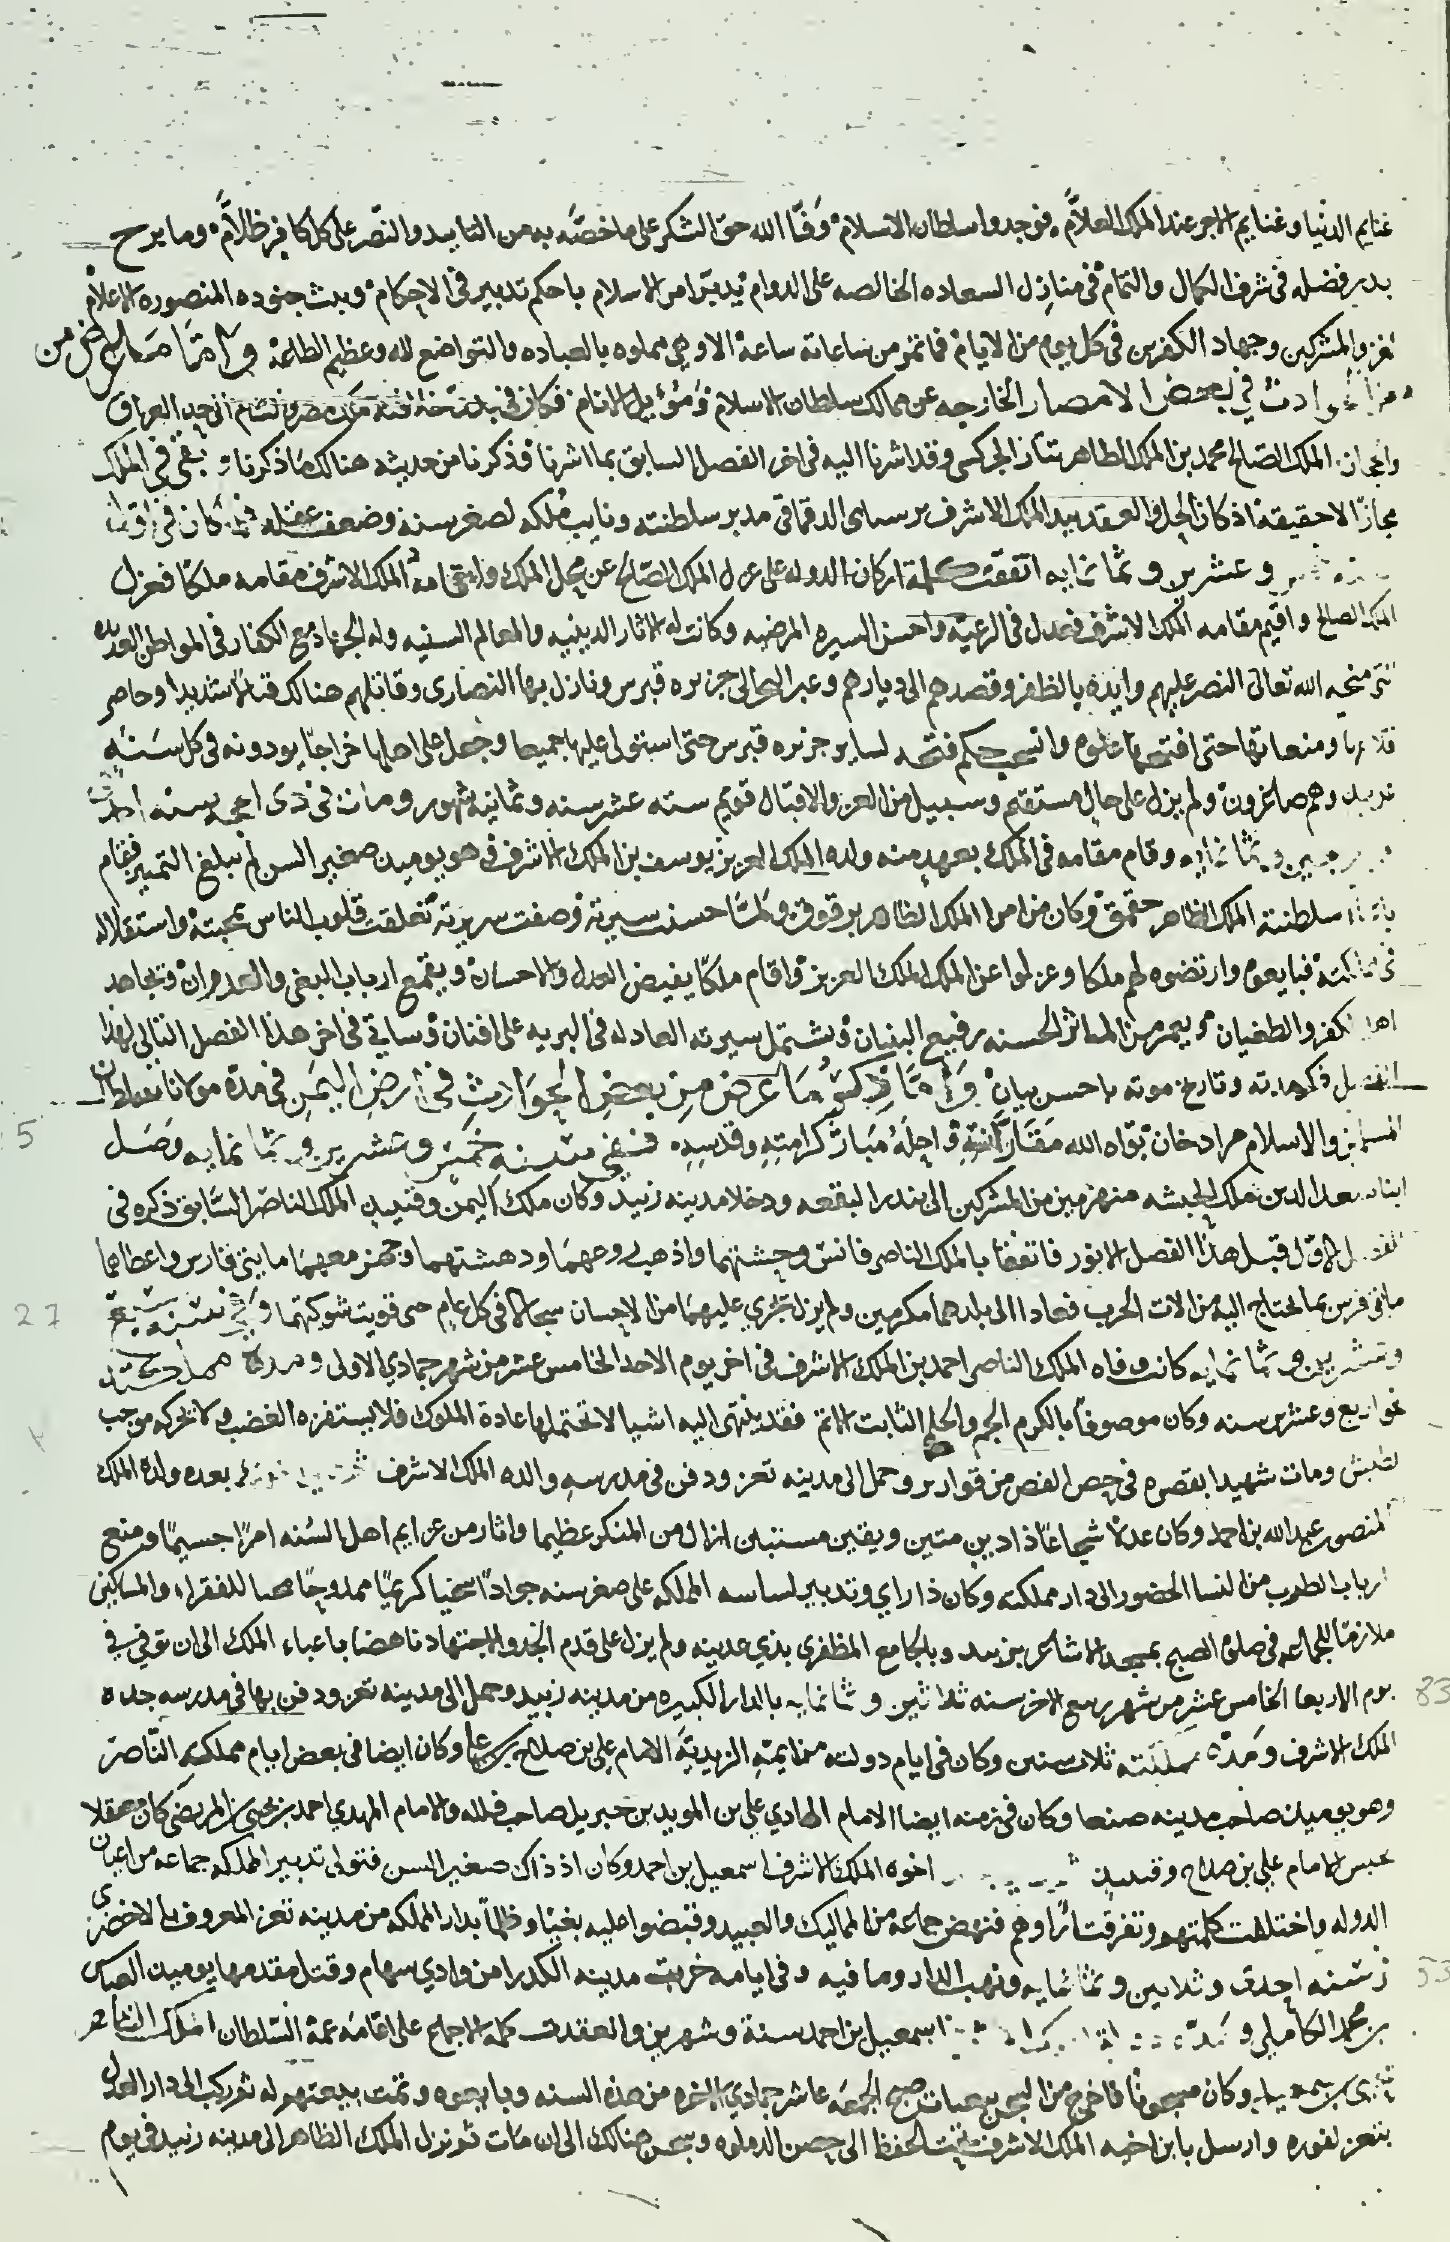 غنايم الدنيا وغنايم الاجر عند الملك العلام فوجدوا سلطان الاسلام وفا الله حق الشكر على ما خصه به من التاييد والنصر على كل كافر ظلام وما برح
بدر فضله فى شرف الكمال والتمام فى منازل السعاده الخالصه على الدوام يدبر امر الاسلام باحكم تدبير فى الاحكام ويبث جنوده المنصوره الاعلام
لغزو المشركين وجهاد الكفرين فى كل يوم من الايام فما تمر من ساعاته ساعة الا وهى مملوه بالعباده والتواضع لله وعظيم الطاعة واما ما عرض من
الحوادث في بعض الامصار الخارجه عن ممالك سلطان الاسلام ومؤيل الانام فكان فى مصر والشام الى حد العراق
الملك الصالح محمد بن الملك الظاهر تتار الجركسى وقد اشرنا اليه فى اخر الفصل السابق بما اشرنا فذكرنا من حديثه هنالك ما ذكرنا بقى فى الملك
مجازا لا حقيقة اذ كان الحل والعقد بيد الملك الاشرف برسباى الدقماقى مدبر سلطنته ونايب ملكه لصغر سنه وضعف عقله فلما كان فى
وعشرين وثمانمايه اتفقت كلمة اركان الدوله على عزل الملك الصالح عن محل الملك واقامة الملك الاشرف مقامه ملكا فعزل
الملك الصالح واقيم مقامه الملك الاشرف فعدل فى الرعيه واحسن السيره المرضيه وكانت له الاثار الدينيه والمعالم السنيه وله الجهاد مع الكفار فى المواطن العديده
منحه الله تعالى النصر عليهم وايده بالظفر وقصدهم الى ديارهم وعبر البحر الى جزيره قبرس ونازل بها النصارى وقاتلهم هنالك قتالا شديدا وحاصر
قلاعها ومنعاتها حتى افتتحها وانسحب حكم فتحه لساير جزيره قبرس حتى استولى عليها جميعا وجعل على اهلها خراجا يودونه فى كل سنه
وهم صاغرون ولم يزل على حال مستقيم وسبيل من العز والاقبال قويم سته عشر سنه وثمانيه شهور ومات فى ذى الحجه سنه احدى
واربعين وثمانمايه وقام مقامه فى الملك بعهد منه ولده الملك العزيز يوسف بن الملك الاشرف وهو يوميد صغير السن لم يبلغ التمييز فقام
سلطنته الملك الظاهر جقمق وكان من امرا الملك الظاهر برقوق ولما حسنت سيرته وصفت سريرته تعلقت قلوب الناس بمحبته واستقلاله
فى مملكته فبايعوه وارتضوه لهم ملكا وعزلوا عن الملك الملك العزيز واقام ملكا يفيض العدل والاحسان ويقمع ارباب البغى والعدوان ويجاهد
اهل الكفر والطغيان ويعمر من الماثر الحسنه رفيع البنيان وتشتمل سيرته العادله فى البريه على افنان وساتى فى اخر هذا الفصل التالى لهذا
الفصل ذكر مدته وتاريخ موته باحسن بيان واما ذكر ما عرض من بعض الحوادث في ارض اليمن في مدة مولانا سلطان
المسلمين والاسلام مراد خان بواه الله واحله مبار كرامته وقدسه ففى سنه خمس وعشرين وثمانمايه وصل
ابنا سعد الدين ملك الحبشه منهزمين من المشركين الى بندر البقعه ودخلا مدينه زبيد وكان ملك اليمن وقتيد الملك الناصر السابق ذكره فى
الفصل الاول قبل هذا الفصل الانور فاتفقا بالملك الناصر فانس وحشتهما واذهب روعهما ودهشتهما وجهز معهما مايتى فارس واعطاهما
مايتى فرس بما يحتاج اليه من الات الحرب فعادا الى بلدهما مكرمين ولم يزل يجرى عليهما من الاحسان سجالا فى كل عام حتى قويت شوكتهما وفي سنه سبع
وعشرين وثمانمايه كانت وفاه الملك الناصر احمد بن الملك الاشرف فى اخر يوم الاحد الخامس عشر من شهر جمادى الاولى ومدة مملكته
نحو اربع وعشرين سنه وكان موصوفا بالكرم الجم والحلم الثابت الاتم فقد ينتهى اليه اشيا لا تحتملها عادة الملوك فلا يستفزه الغضب ولا يحركه موجب
لطيش ومات شهيدا بقصره فى حصن الفص من قوارير وحمل الى مدينه تعز ودفن فى مدرسه والده الملك الاشرف بعده ولده الملك
المنصور عبد الله بن احمد وكان عدلا شجاعا ذا دين متين ويقين مستبين ازال من المنكر عظيما واثار من عزايم اهل السنه امرا جسيما ومنع
ارباب الطرب من النسا الحضور الى دار مملكته وكان ذا راي وتدبير لساسه المملكه على صغر سنه جوادا سخيا كريما ممدوحا محبا للفقراء والمساكين
ملازما للجماعه فى صلاة الصبح بمسجد الاشاعر بزبيد وبالجامع المظفرى بذي عدينه ولم يزل على قدم الجد والاجتهاد ناهضا باعباء الملك الى ان توفى في
يوم الاربعا الخامس عشر من شهر ربيع الاخر سنه ثلاثين وثمانمايه بالدار الكبيره من مدينه زبيد وحمل الى مدينه تعز ودفن بها فى مدرسه جده
الملك الاشرف ومدة سلطنته ثلاث سنين وكان فى ايام دولته من ايمة الزيديه الامام على بن صلاح بن على وكان ايضا فى بعض ايام مملكة الناصر
وهو يوميد صاحب مدينه صنعا وكان فى زمنه ايضا الامام الهادي على بن المويد بن جبريل صاحب فلله والامام المهدى احمد بن يحيى المرتضى كان معتقلا
بحبس الامام على بن صلاح وقتيد اخوه الملك الاشرف اسمعيل بن احمد وكان اذ ذاك صغير السن فتولى تدبير المملكه جماعه من اعيان
الدوله واختلفت كلمتهم وتفرقت اراوهم فنهض جماعة من المماليك والعبيد وقبضوا عليه بغيا وظلما بدار المملكه من مدينه تعز المعروف بالاخضرى
سنه احدى وثلاثين وثمانمايه ونهب الدار وما فيه وفى ايامه خربت مدينه الكدرا من وادي سهام وقتل مقدمها يوميد العباس
بن محمد الكاملي ومدة اسمعيل بن احمد سنة وشهرين وانعقدت كلمه الاجماع على اقامة عمه السلطان الملك الظاهر
يحيى وكان مسجونا فاخرج من السجن صبح الجمعه عاشر جمادى الاخره من هذه السنه وبايعوه وتمت بيعتهم له ثم ركب الى دار العدل
بتعز لفوره وارسل بابن اخيه الملك الاشرف تحت الحفظ الى حصن الدملوه وسجن هنالك الى ان مات ثم نزل الملك الظاهر الى مدينه زبيد فى يوم
5
27
83
53